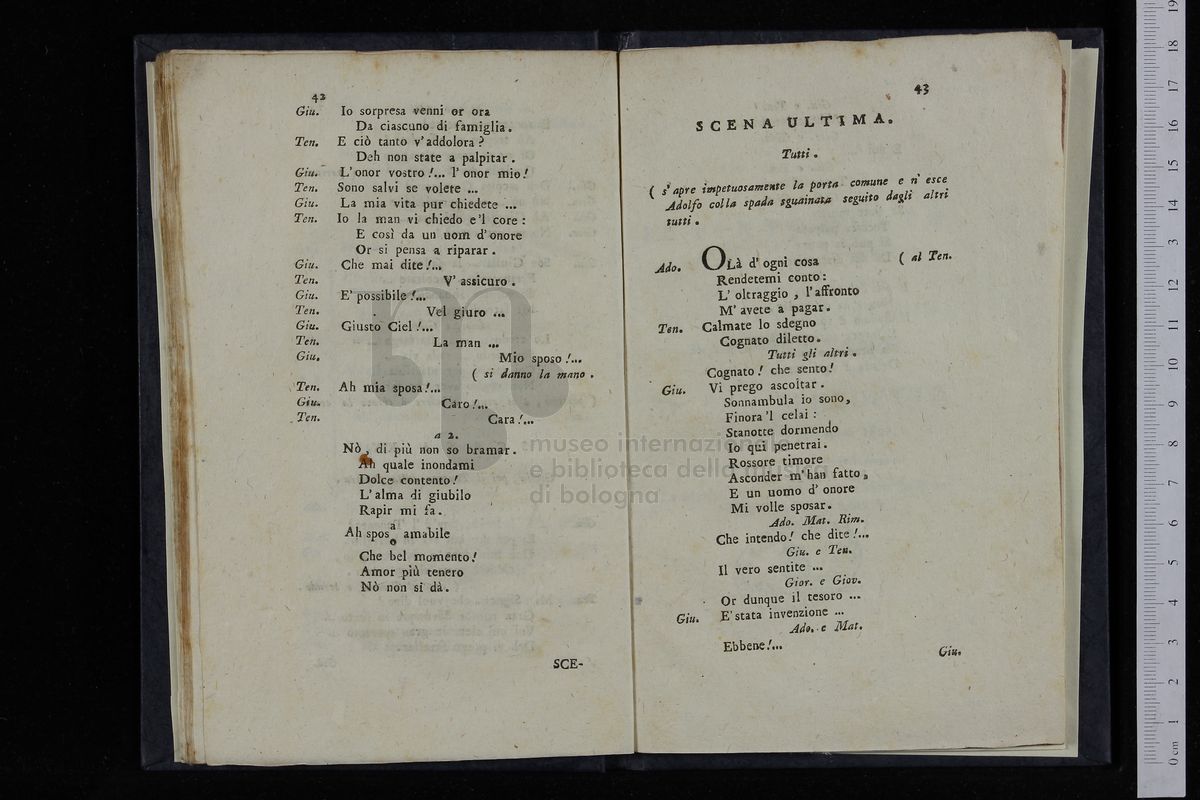 42
Giu. Io sorpresa venni or ora
Da ciascuno di famiglia.
Ten. E ciò tanto v'addolora?
Deh non state a palpitar.
Giu. L'onor vostro!... l'onor mio!
Ten. Sono salvi se volete ...
Giu. La mia vita pur chiedete ...
Ten. Io la man vi chiedo e'l core:
E così da un uom d'onore
Or si pensa a riparar.
Giu. Che mai dite!...
Ten. V'assicuro.
Giu. E' possibile!...
Ten. Vel giuro ...
Giu. Giusto Ciel!...
Ten. La man ...
Giu. Mio sposo!...
( si danno la mano.
Ten. Ah mia sposa!...
Giu. Caro!...
Ten. Cara!...
a 2.
Nò, di più non so bramar.
Ah quale inondami
Dolce contento!
L'alma di giubilo
Rapir mi fa.
Ah spos a/o amabile
Che bel momento!
Amor più tenero
Nò non si dà.
SCE-
43
SCENA ULTIMA.
Tutti.
( s'apre impetuosamente la porta comune e n'esce
Adolfo colla spada sguainata seguito dagli altri
tutti.
Ado. OLà d'ogni cosa ( al Ten.
Rendetemi conto:
L'oltraggio, l'affronto
M'avete a pagar.
Ten. Calmate lo sdegno
Cognato diletto.
Tutti gli altri.
Cognato! che sento!
Giu. Vi prego ascoltar.
Sonnambula io sono,
Finora'l celai:
Stanotte dormendo
Io qui penetrai.
Rossore timore
Asconder m'han fatto,
E un uomo d'onore
Mi volle sposar.
Ado. Mat. Rim.
Che intendo! che dite!...
Giu. e Ten.
Il vero sentite ...
Gior. e Giov.
Or dunque il tesoro ...
Giu. E'stata invenzione ...
Ado. e Mat.
Ebbene!...
Giu.
m
museo internazionale
e biblioteca della musica
di bologna
0 cm 1 2 3 4 5 6 7 8 9 10 11 12 13 14 15 16 17 18 19